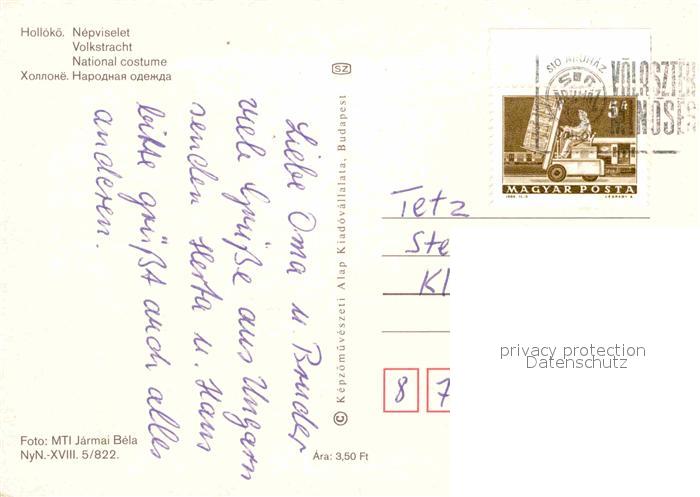 Hollókő. Népviselet
Volkstracht
National costume
Холлокё. Народная одежда
Liebe Oma u. Bruder
viele Grüße aus Ungarn
senden Herta u. Hans
bitte grüßt auch alles
anderen.
Foto: MTI Jármai Béla
NyN.-XVIII. 5/822.
SZ
© Képzőművészeti Alap Kiadóvállalata, Budapest
Ára: 3,50 Ft
SIÓ ÁRUHÁZ
5 Ft
MAGYAR POSTA
Tetz
Ste
Kl
8 7
privacy protection
Datenschutz